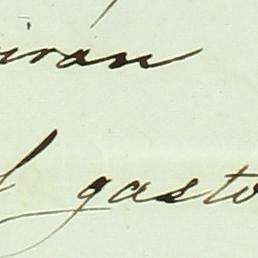 irán
l gasto